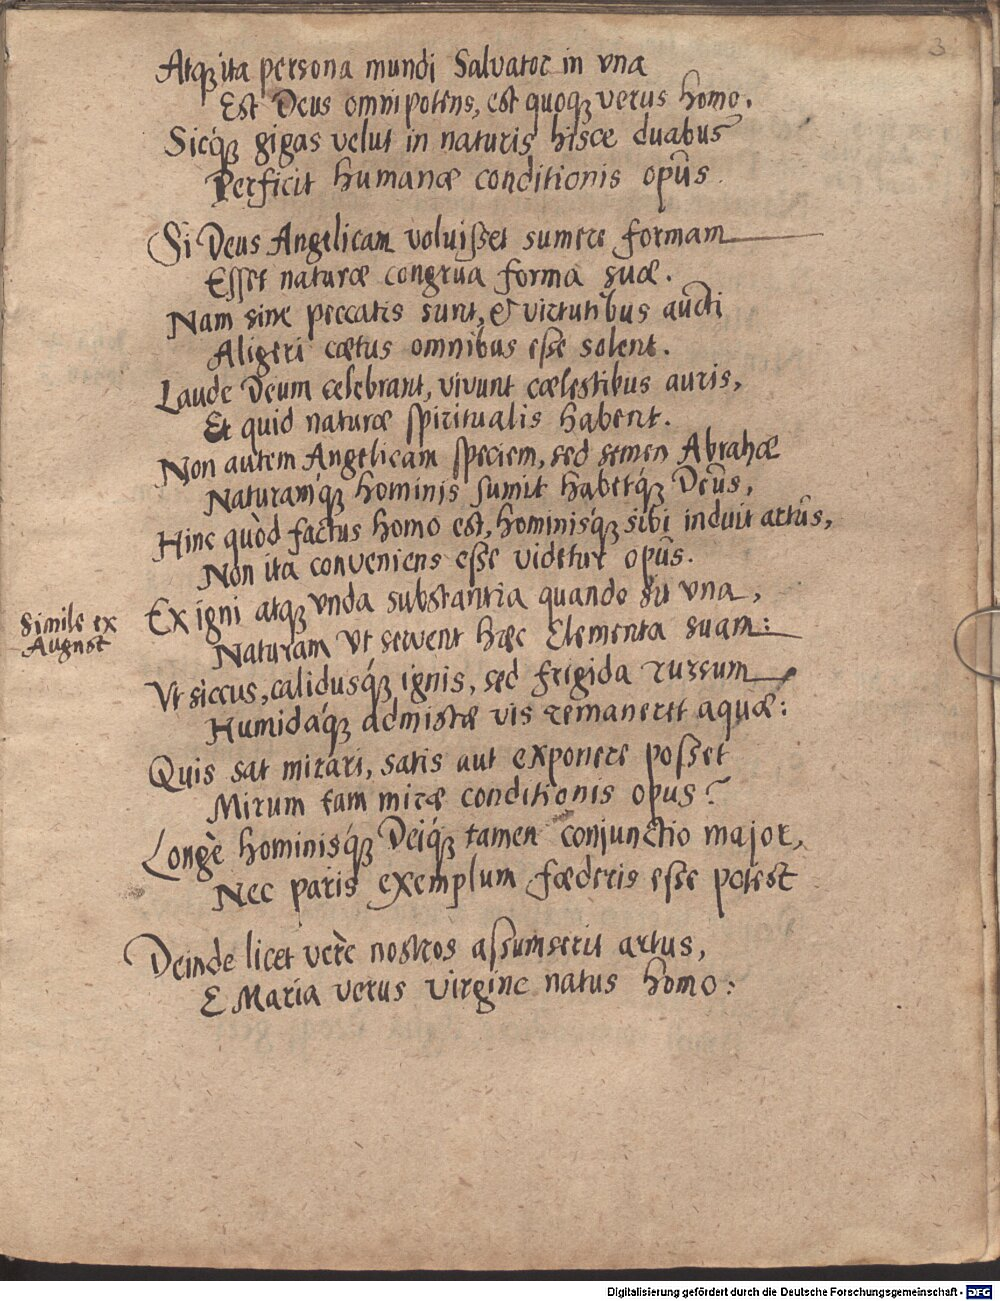 3
Atq́ue ita persona mundi Salvator in vna
Est Deus omnipotens, est quoqꝫ verus homo.
Sicq́ꝫ gigas velut in naturis hisce duabus
Perficit humanæ conditionis opûs.
Si Deus Angelicam voluisset sumere formam
Esset naturæ congrua forma suæ.
Nam sine peccatis sunt, & virtutibus aucti
Aligeri cœtus omnibus esse solent.
Laude Deum celebrant, vivunt cœlestibus auris,
Et quid naturæ spiritualis habent.
Non autem Angelicam speciem, sed semen Abrahæ
Naturamq́ꝫ hominis sumit habetq́ꝫ Deûs,
Hinc quòd factus homo est, hominisq́ꝫ sibi induit artûs,
Non ita conveniens esse videtur opûs.
Simile ex
August
Ex igni atqꝫ vnda substantia quando sit vna,
Naturam Vt servent hæc Elementa suam:
Vt siccus, calidusq́ꝫ ignis, sed frigida rursum
Humidaq́ꝫ admistæ vis remaneret aquæ:
Quis sat mirari, satis aut exponere posset
Mirum tam miræ conditionis opus?
Longè hominisq́ꝫ Deiq́ꝫ tamen conjunctio major,
Nec paris exemplum fœderis esse potest
Deinde licet verè nostros assumserit artus,
E Maria verus virgine natus homo:
Digitalisierung gefördert durch die Deutsche Forschungsgemeinschaft - DFG